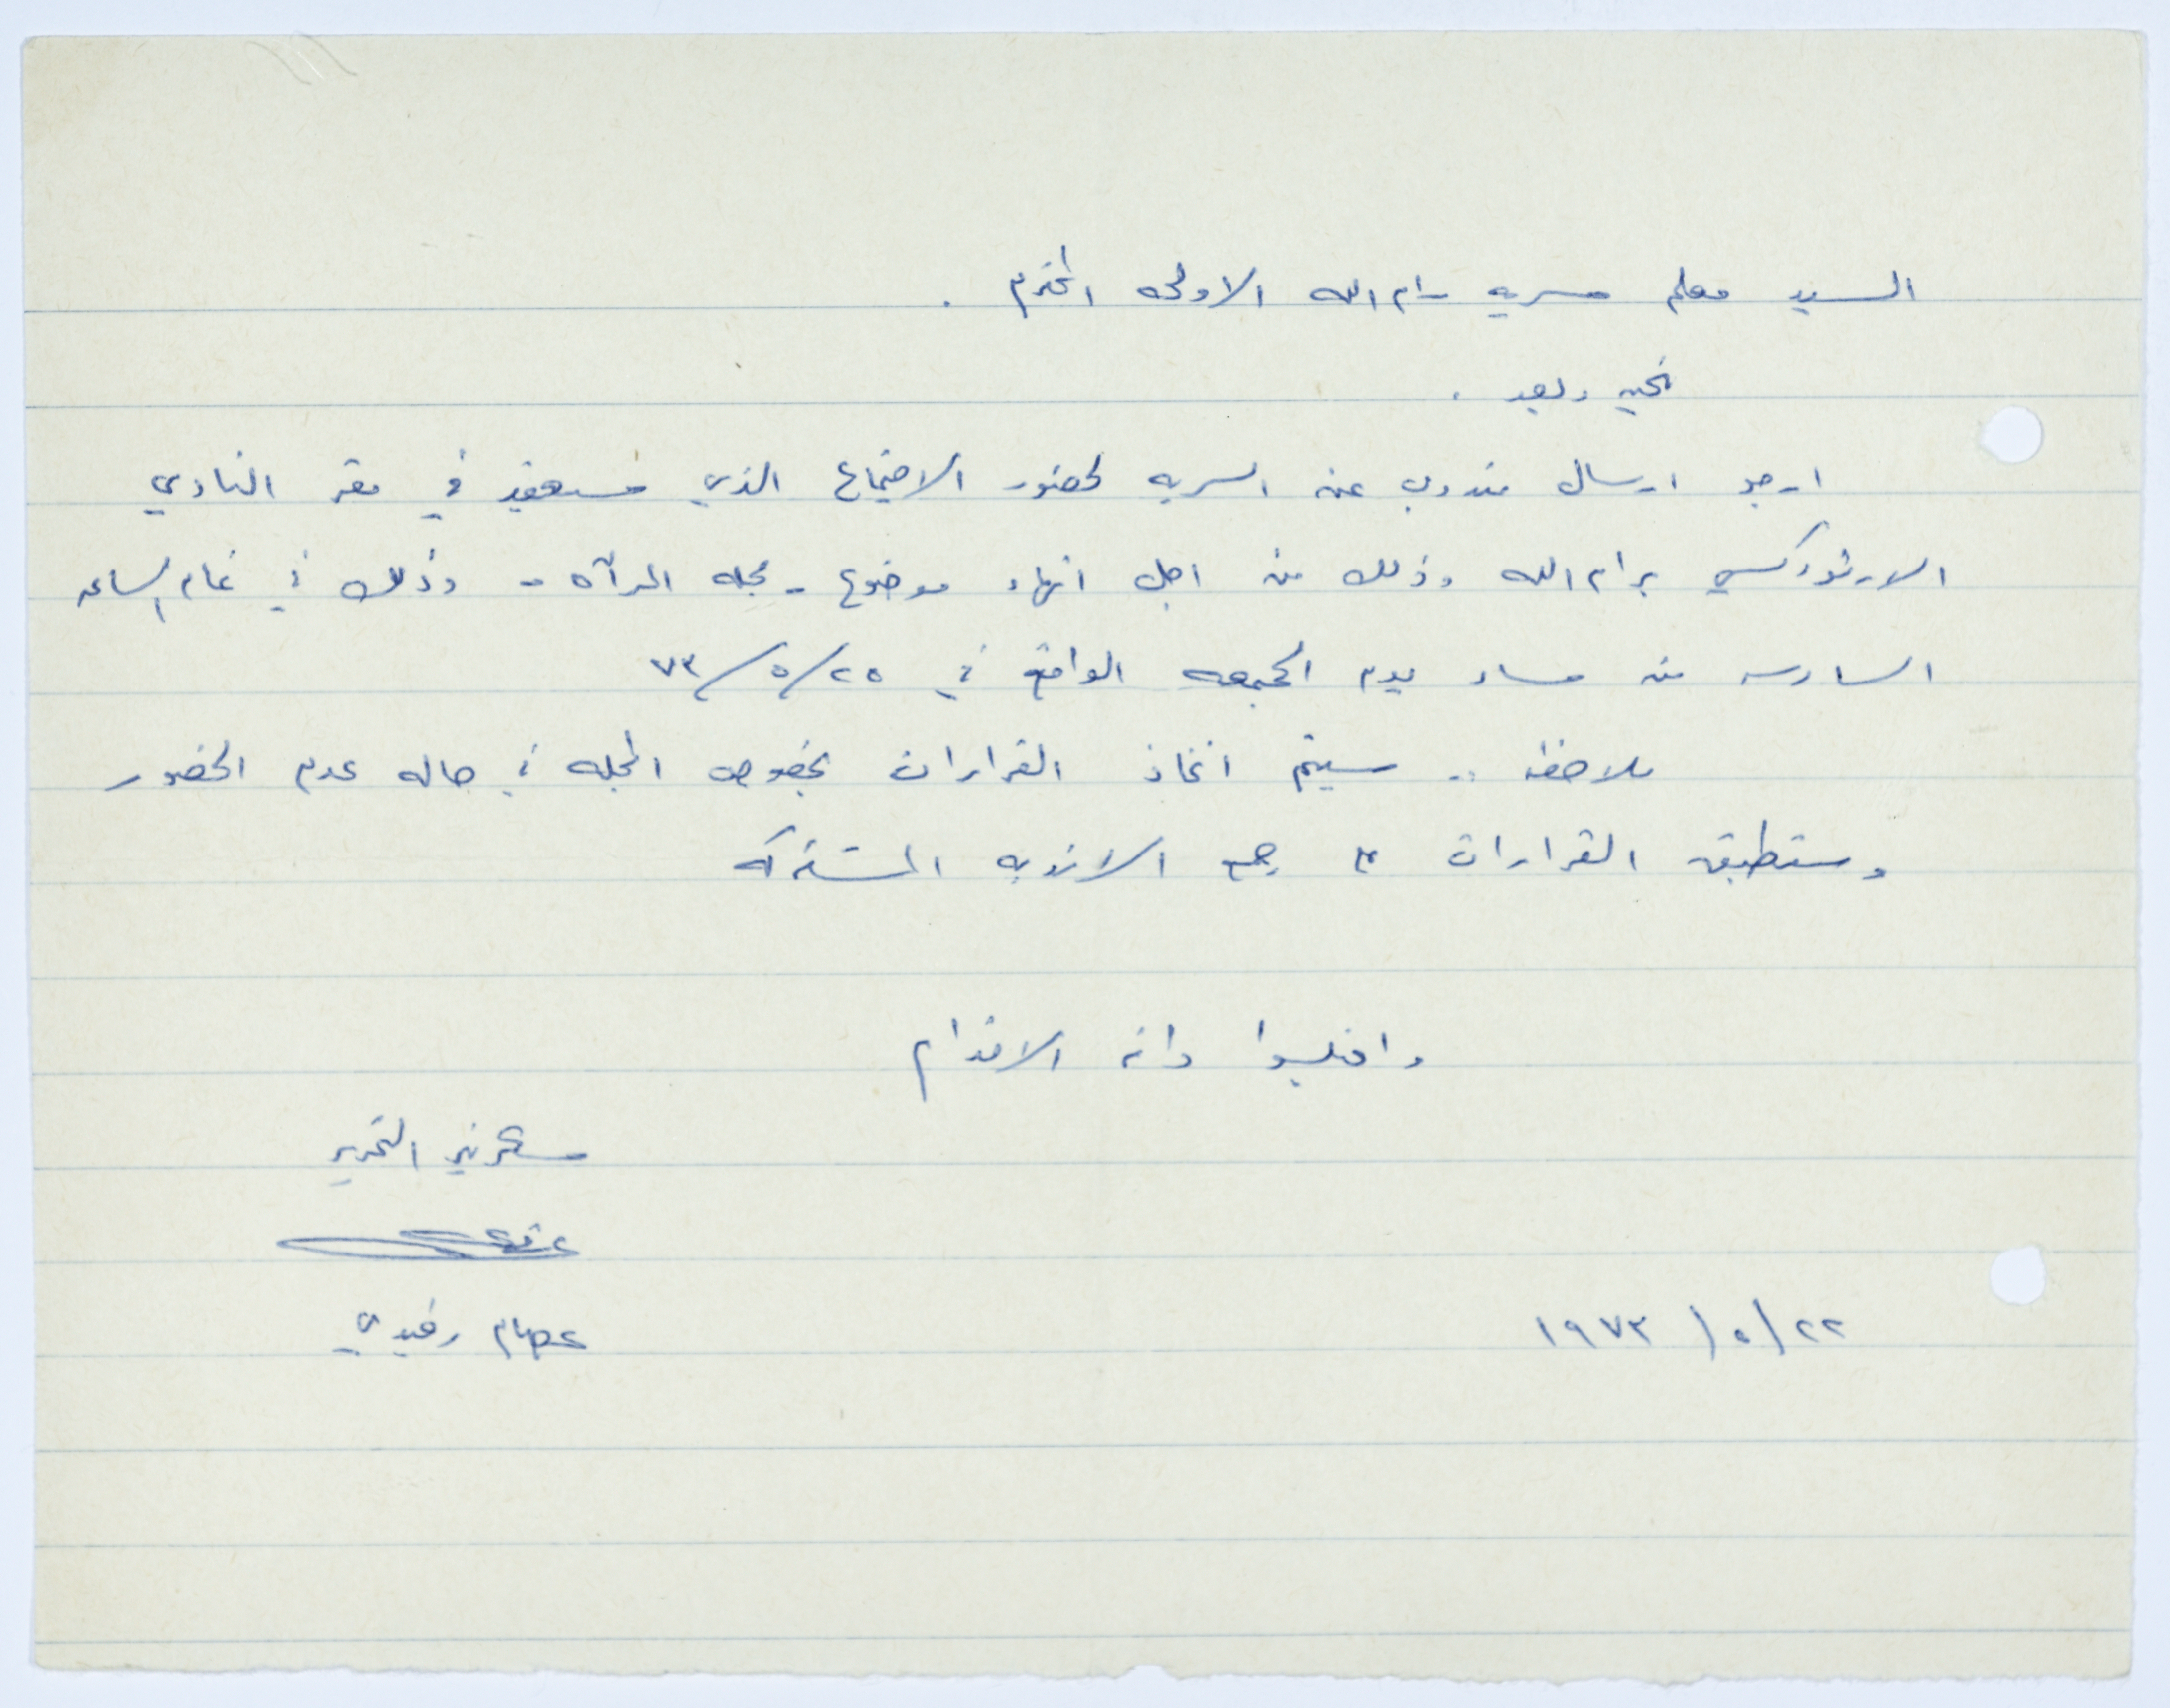 السيد معلم سريه رام الله الاولى المحترم .
تحيه وبعد .
ارجو ارسال مندوب عن السريه لحضور الاجتماع الذي سيعقد في مقر النادي
الارثوذكسي برام الله وذلك من اجل انهاء موضوع - مجله المرآه - وذلك في تمام الساعه
السادسه من مساء يوم الجمعه الواقع في ٢٥/٥/٧٣
ملاحظه .. سيتم اتخاذ القرارات بخصوص المجله في حاله عدم الحضور
وستطبق القرارات على جميع الانديه المشتركه
واقبلوا فائق الاحترام
سكرتير التحرير
عصام رفيدي
٢٢/٥/١٩٧٣